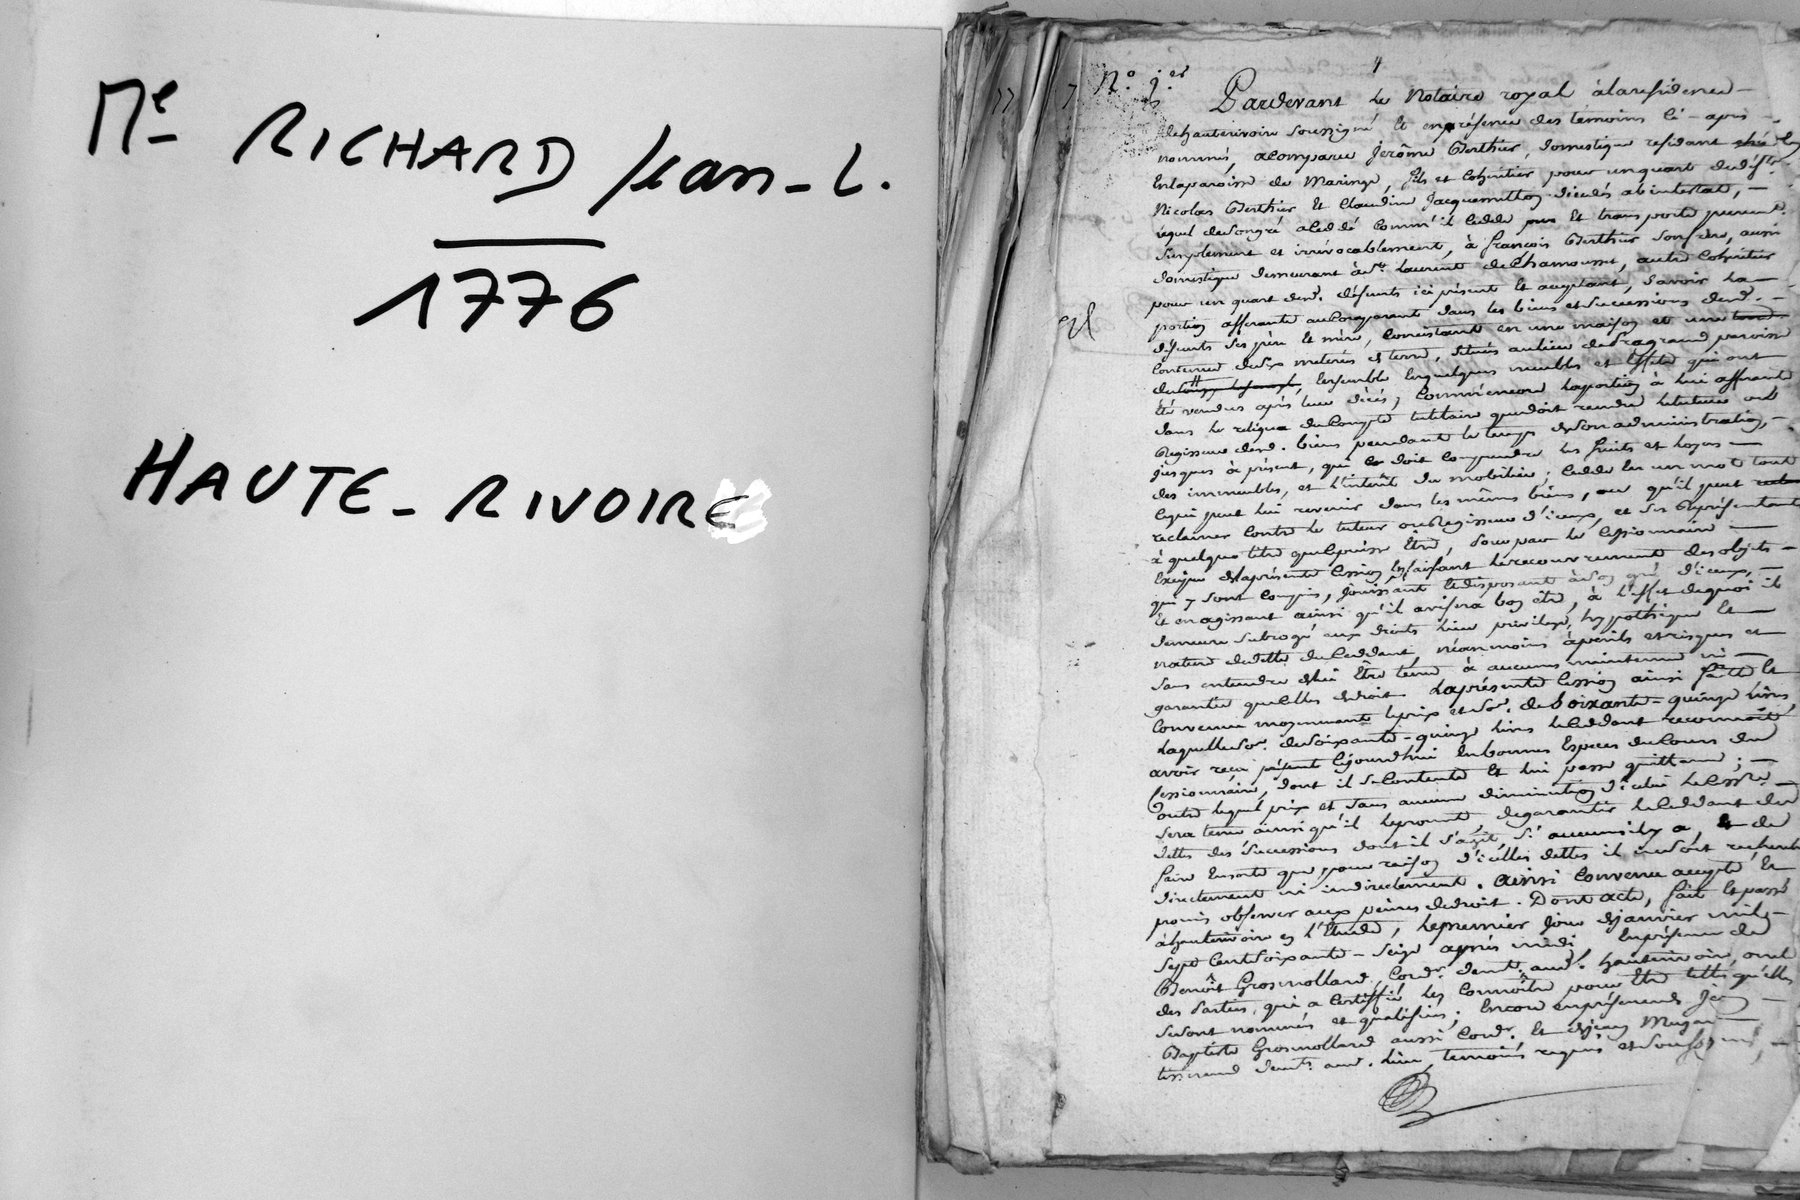 Me RICHARD Jean-L.
1776
HAUTE-RIVOIRE
N.º 1.er
Pardevant le Notaire royal àlaresidence
dehauterivoire soussigné et enprésence des témoins ci-après
nommés, acomparu Jerôme Berthier, domestique résidant
Enlaparoisse de Maringe, fils et cohéritier pour unquart dedéfts.
Nicolas Berthier Et Claudine Jacquemetton décédés abintestat,
lequel desongré acédé comm'il cedde et transporte purement
simplement et irrévocablement, à françois Berthier sonfrère, aussi
domestique demeurant àst. Laurent deChamousset, autre cohéritier
pour un quart desd. défunts ici présent et acceptant, savoir la
portion afférante aucomparant dans les biens et successions desd.
défunts ses père et mère, consistant en une maison et une
contenue desix meterées de terre, situés aulieu de paroisse
Ensemble Enquelques meubles et effets qui ont
été vendus après leur décès, comm'encore laportion à lui afférante
dans le reliqua ducompte tutélaire quedoit rendre letuteur ou
Régisseur desd. biens pendant le temps desonadministration,
jusques à présent, qui doit comprendre les fruits et loyers
des immeubles, et l'intérêt du mobilier; cedde En un mot tout
cequi peut lui revenir dans les mêmes biens, ou qu'il peut
réclamer contre le tuteur ouRégisseur d'iceux, et ses Représentants
à quelque titre quecepuisse être, pour par le cessionnaire
laprésente cession Enfaisant lerecouvrement des objets
qui y sont compris, jouissant etdisposant àson gré d'iceux,
Et enagissant ainsi qu'il avisera bon être, à l'effet dequoi il
demeure subrogé aux droits lieu privilège, hypothèque Et
nature dedette duCeddant, néanmoins àpérils etrisques et
sans entendre être tenu à aucune maintenue ni
garantie quecelles dedroit. Laprésente cession ainsi faite Et
convenue moyennant leprix et so. de soixante-quinze livres
laquelle so. desoixante-quinze livres leCeddant reconnoit
avoir reçu présentement cejourd'hui Enbonnes Espèces ducours du
Cessionnaire, dont il secontente Et lui passe quittance;
outre lequel prix et sans aucune diminution d'icelui leCessre.
sera tenu ainsi qu'il lepromet, degarantir leCeddant des
dettes des successions dont il s'agit, si aucunesily a, et de
faire Ensorte que pour raison d'icelles dettes il nesoit recherché
directement ni indirectement. Ainsi convenu accepté Et
promis observer aux peines dedroit. Dont acte, fait Et passé
àhauterivoire En l'Etude, lepremier jour dejanvier mil-
sept Centsoixante-seize après midi, Enprésence de
Benoît Grosmollard Cordr. demt. aud. hauterivoire, oncle
des Parties, qui a certiffié les connoître pour être telles qu'elles
sesont nommées et qualifiées; Encore enprésence de Jean
Baptiste Grosmollard aussi Cordr. Et deJean
tisserand demts. aud. lieu, témoins requis et soussignés,